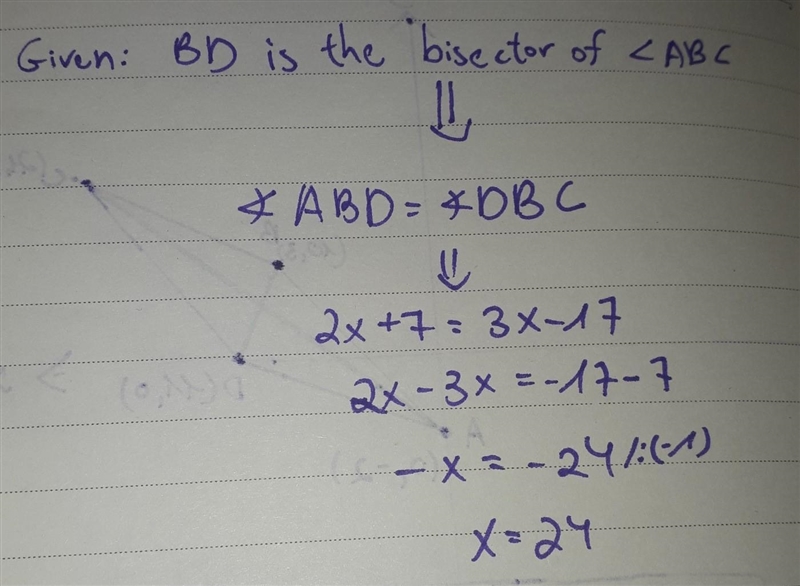 Given: BD is the bisector of ∠ABC
⇓
∢ABD = ∢DBC
⇓
2x+7 = 3x-17
2x - 3x = -17-7
-x = -24 /:(-1)
x = 24